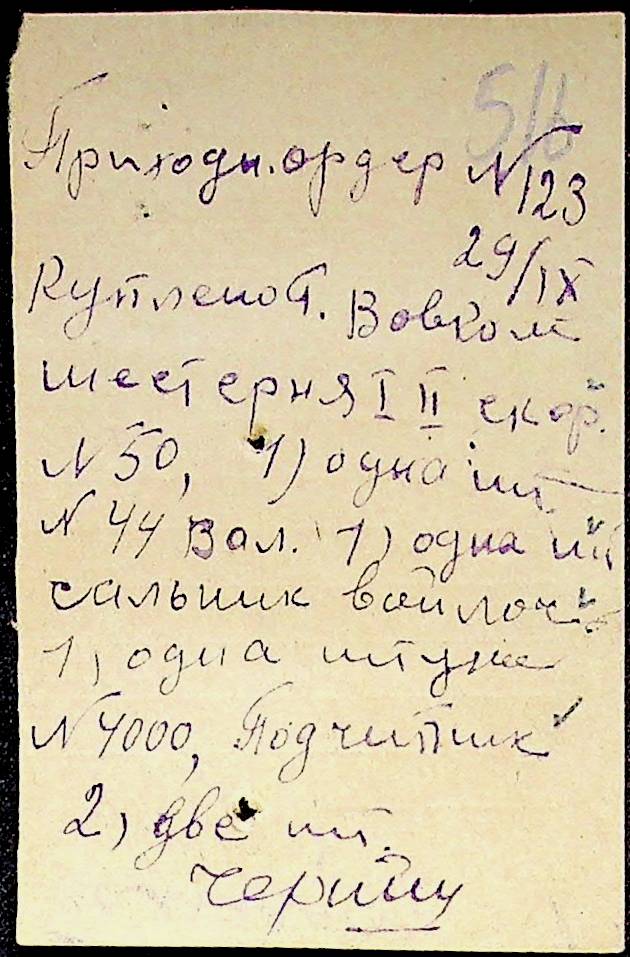 516
Приходн. ордер N 123
29/IX
Куплено т. Вовком
шестерня I II скор.
N 50, 1) одна шт.
N 44 Вал. 1) одна шт
сальник войлоч.
1, одна штука
N 4000, Подчипник
2) две шт.